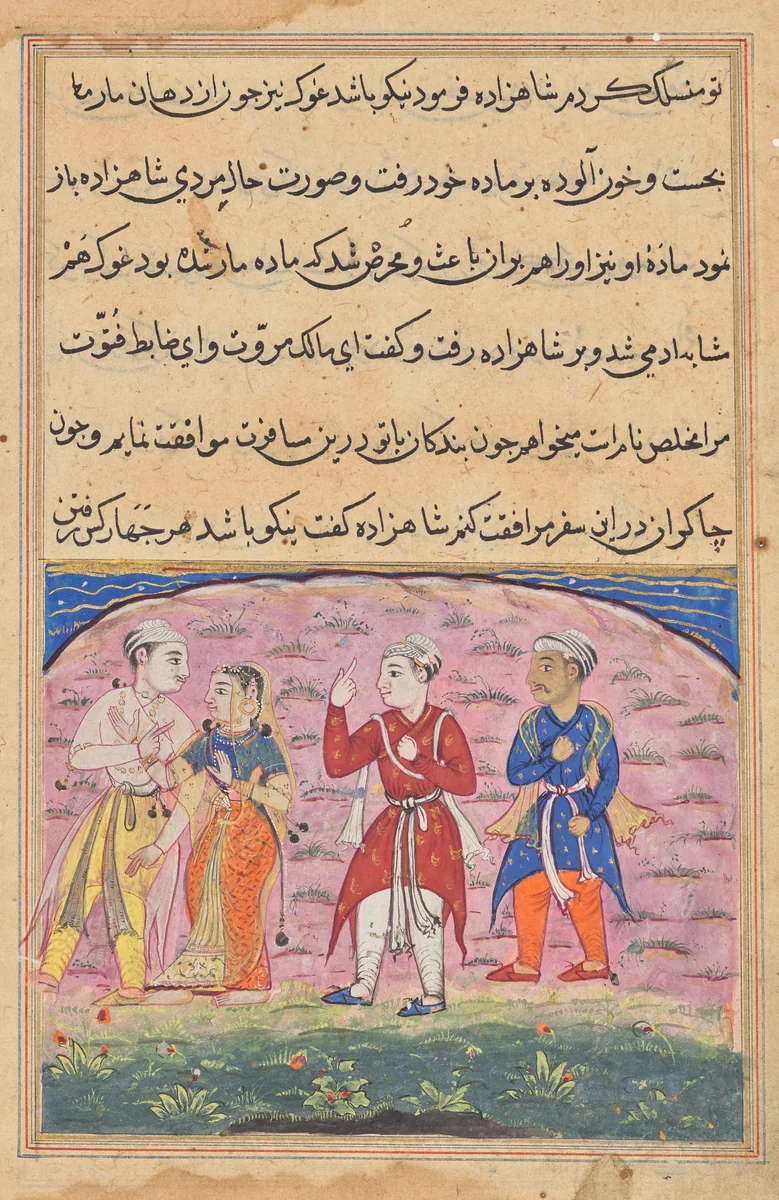 تو منسلک کردم شاهزاده فرمود نیکو باشد غوک نیز چون از دهان مار
بجست و خون آلوده بر ماده خود رفت و صورت حال مردي شاهزاده باز
نمود مادهٔ او نیز او را هم بران باعث و محرض شد که ماده مار شده بود غوک هم
شد و بر شاهزاده رفت و کفت اي مالک مروّت و اي ضابط فتوّت
مرا مخلص نام است میخواهم چون بندکان با تو درین مسافرت موافقت نمایم و چون
چاکران در این سفر مرافقت کنم شاهزاده کفت نیکو باشد هر چهار کس رفتن